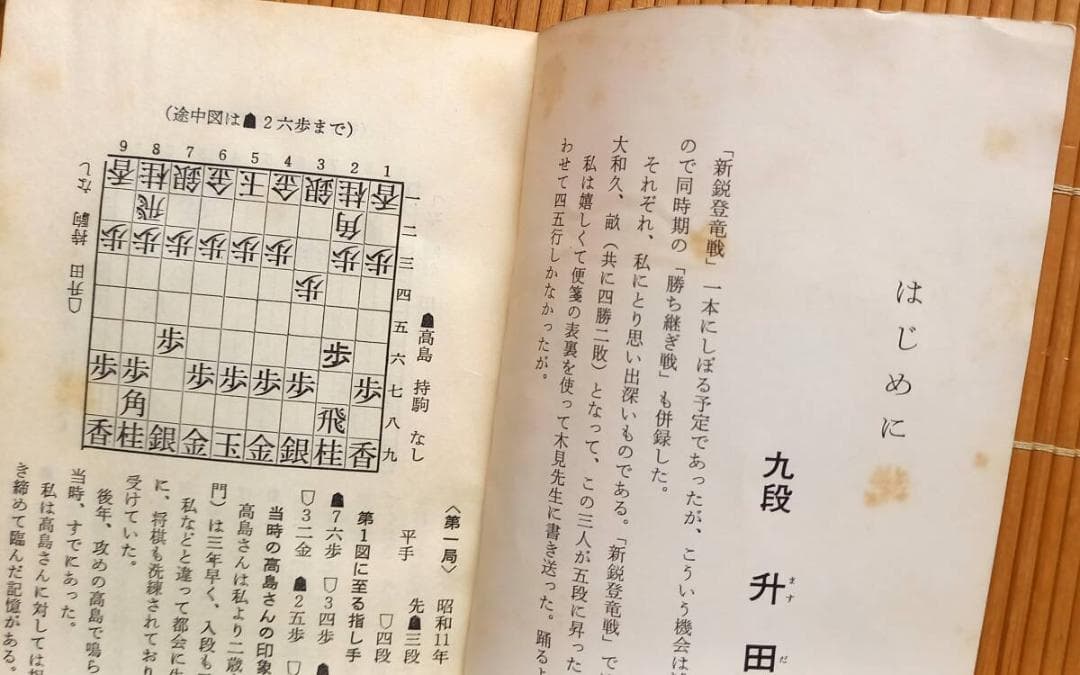 はじめに
九段 升田
ます だ
「新鋭登竜戦」一本にしぼる予定であったが、こういう機会は
ので同時期の「勝ち継ぎ戦」も併録した。
それぞれ、私にとり思い出深いものである。「新鋭登竜戦」で
大和久、畝（共に四勝二敗）となって、この三人が五段に昇った
私は嬉しくて便箋の表裏を使って木見先生に書き送った。踊るよ
わせて四五行しかなかったが。
（途中図は☗２六歩まで）
9 8 7 6 5 4 3 2 1
香桂銀金玉金銀桂香 一
飛角 二
歩歩歩歩歩歩歩歩 三
歩 四
五
歩歩 六
歩歩歩歩歩歩歩 七
角飛 八
香桂銀金玉金銀桂香 九
☗高島 持駒 なし
☖升田 持駒 なし
〈第一局〉 昭和11年
平手 先☗三段
☖四段
第１図に至る指し手
☗７六歩 ☖３四歩 ☗
☖３二金 ☗２五歩 ☖
当時の高島さんの印象
高島さんは私より二歳
門）は三年早く、入段も
私などと違って都会に生
に、将棋も洗練されており
受けていた。
後年、攻めの高島で鳴ら
当時、すでにあった。
私は高島さんに対しては
き締めて臨んだ記憶がある。